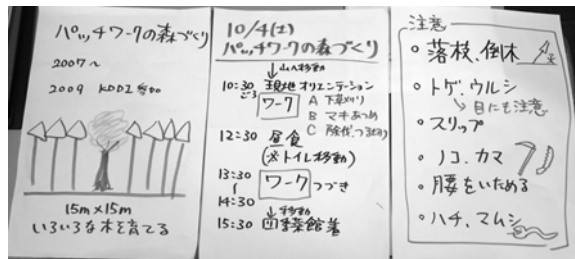 パッチワークの森づくり
2007〜
2009 KDDI参加
15m×15m
いろいろな木を育てる
10/4(土)
パッチワークの森づくり
↓山へ移動
10:30ごろ 現地オリエンテーション
ワーク A 下草刈り
B マキあつめ
C 除伐、つる切り
12:30 昼食
(※トイレ移動)
13:30 ワーク つづき
14:30
↓移動
15:30 四季菜館着
注意
・落枝、倒木
・トゲ、ウルシ
↘目にも注意
・スリップ
・ノコ、カマ
・腰をいためる
・ハチ、マムシ